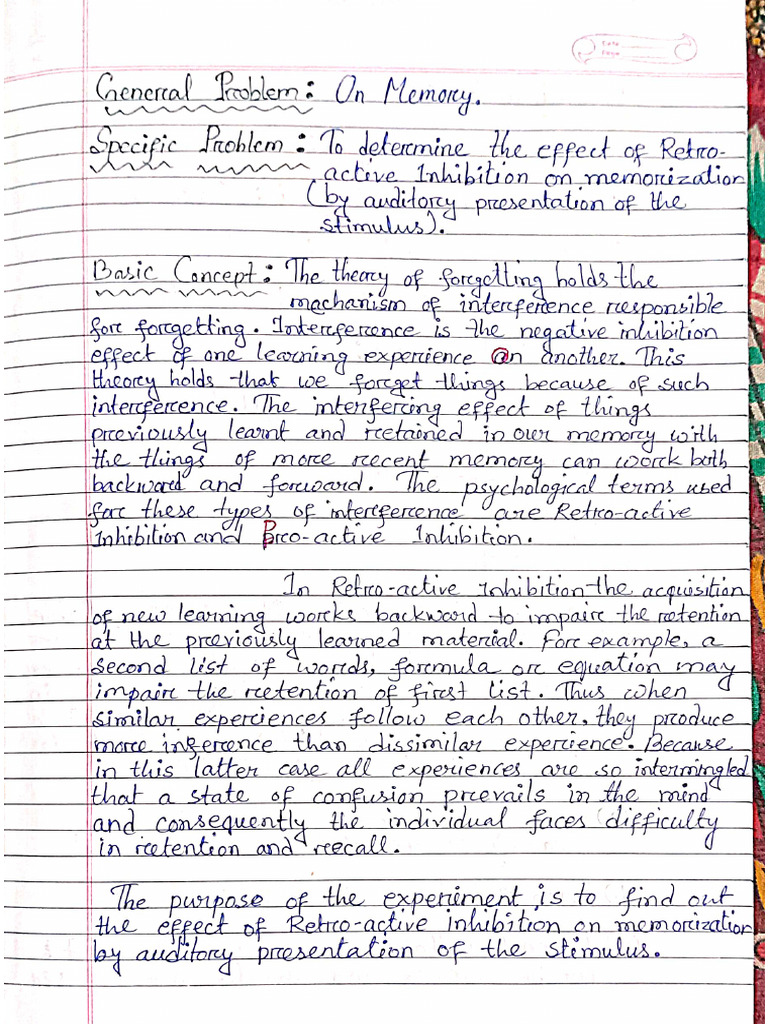 Date
Page
General Problem: On Memory.
Specific Problem: To determine the effect of Retro-
active Inhibition on memorization
(by auditory presentation of the
stimulus).
Basic Concept: The theory of forgetting holds the
mechanism of interference responsible
for forgetting. Interference is the negative inhibition
effect of one learning experience on another. This
theory holds that we forget things because of such
interference. The interfering effect of things
previously learnt and retained in our memory with
the things of more recent memory can work both
backward and forward. The psychological terms used
for these types of interference are Retro-active
Inhibition and Pro-active Inhibition.
In Retro-active Inhibition the acquisition
of new learning works backward to impair the retention
at the previously learned material. For example, a
second list of words, formula or equation may
impair the retention of first list. Thus when
similar experiences follow each other, they produce
more inference than dissimilar experience. Because
in this latter case all experiences are so intermingled
that a state of confusion prevails in the mind
and consequently the individual faces difficulty
in retention and recall.
The purpose of the experiment is to find out
the effect of Retro-active inhibition on memorization
by auditory presentation of the stimulus.